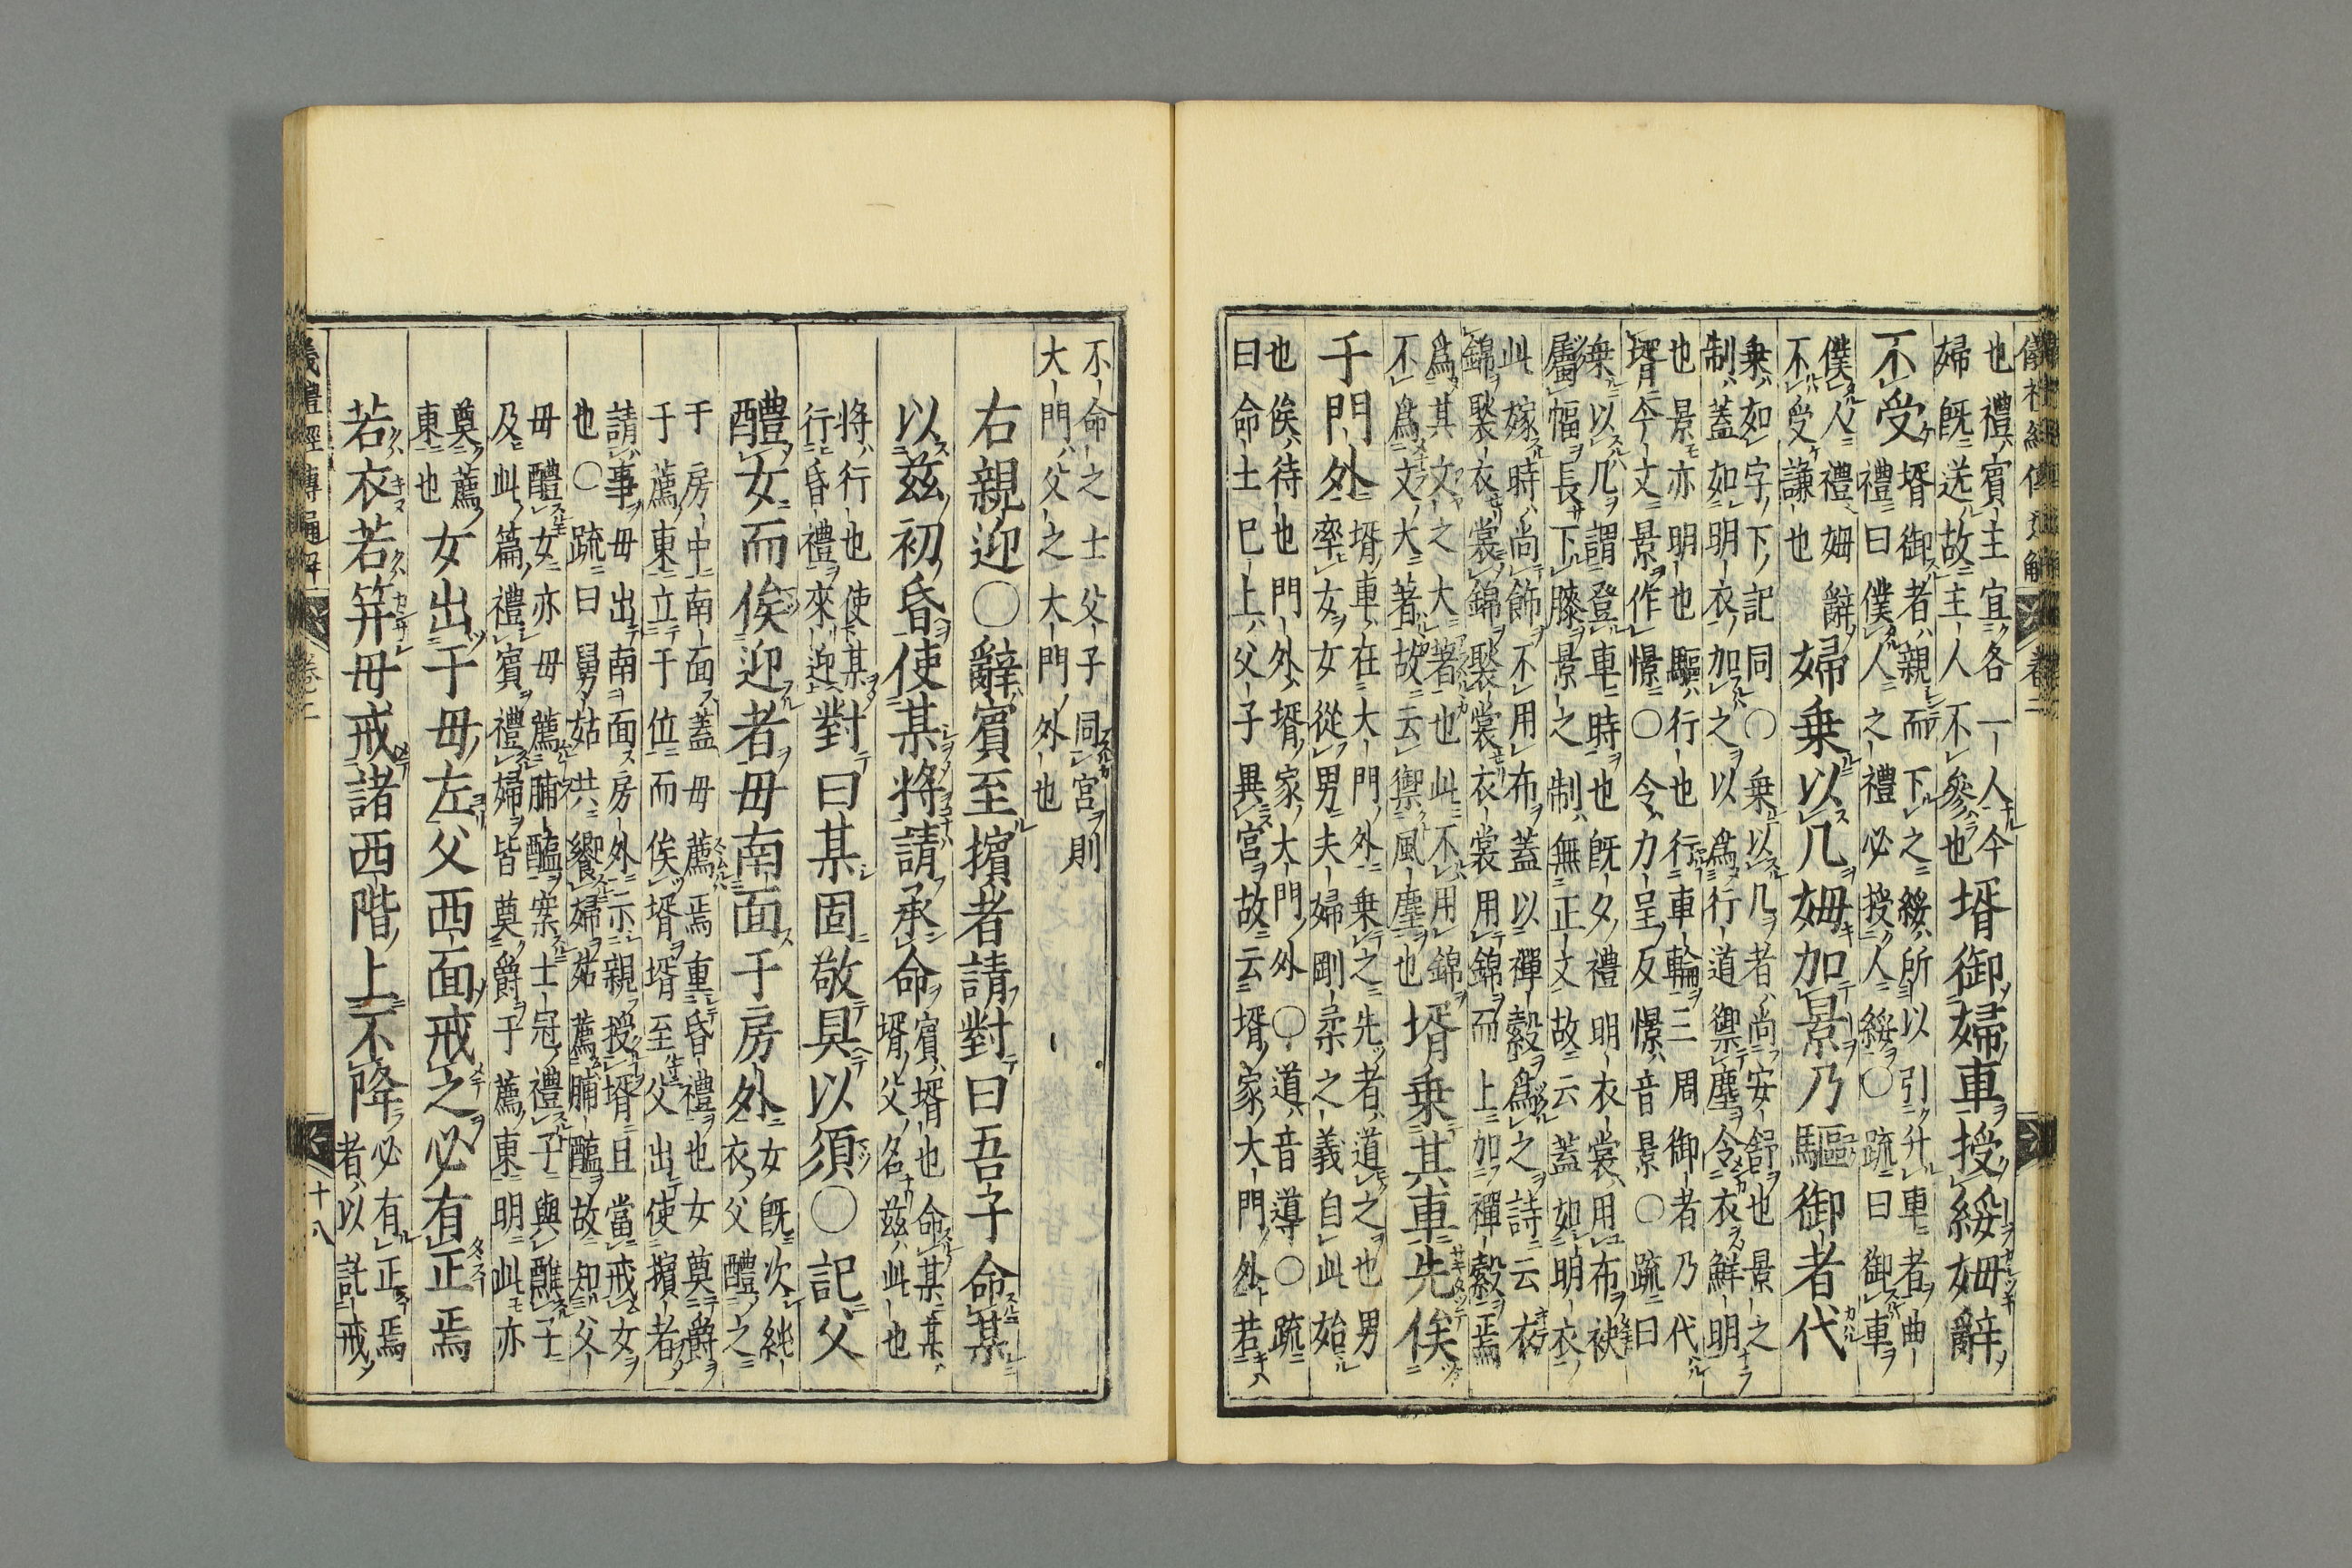 儀禮經傳通解 卷二
也禮賓主宜各一人今
婦既送故主人不參也
壻御婦車授綏姆辭
不受
壻御者親而下之綏所以引升車者曲
禮曰僕人之禮必授人綏○疏曰御車
僕人禮姆辭
不受謙也
婦乗以几姆加景乃驅御者代
乗如字下記同○乗以几者尚安舒也景之
制蓋如明衣加之以爲行道禦塵令衣鮮明
也景亦明也驅行也行車輪三周御者乃代
壻今文景作憬○令力呈反憬音景○疏曰
乗以几謂登車時也既夕禮明衣裳用布袂
屬幅長下膝景之制無正文故云蓋如明衣
此嫁時尚飾不用布蓋以禪縠爲之詩云衣
錦褧衣裳錦褧裳衣裳用錦而上加禪縠焉
爲其文之大著也此不用錦
不爲文大著故云禦風塵也
壻乗其車先俟
于門外
壻車在大門外乗之先者道之也男
率女女從男夫婦剛柔之義自此始
也俟待也門外壻家大門外○道音導○疏
曰命士已上父子異宮故云壻家大門外若
不命之士父子同宮則
大門父之大門外也
右親迎○辭賓至擯者請對曰吾子命某
以兹初昏使某將請承命
賓壻也命某某
壻父名兹此也
將行也使某
行昏禮來迎
對曰某固敬具以須○記父
醴女而俟迎者母南面于房外
女既次純
衣父醴之
于房中南面蓋母薦焉重昏禮也女奠爵
于薦東立于位而俟壻壻至父出使擯者
請事母出南面房外示親授壻且當戒女
也○疏曰舅姑共饗婦姑薦脯醢故知父
母醴女亦母薦脯醢案士冠禮子與醮子
及此篇禮賓禮婦皆奠爵于薦東明此亦
奠薦
東也
女出于母左父西面戒之必有正焉
若衣若笄母戒諸西階上不降
必有正焉
者以託戒
儀禮經傳通解 卷二 十八